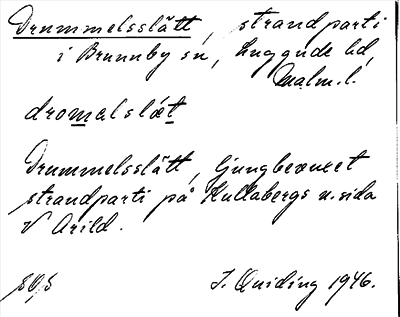 Drummelsslätt, strandparti
i Brunnby sn, Luggude hd,
Malm.l.
dromalslæt
Drummelsslätt, ljungbevuxet
strandparti på Kullabergs n.sida
V Arild.
J. Quiding 1946.